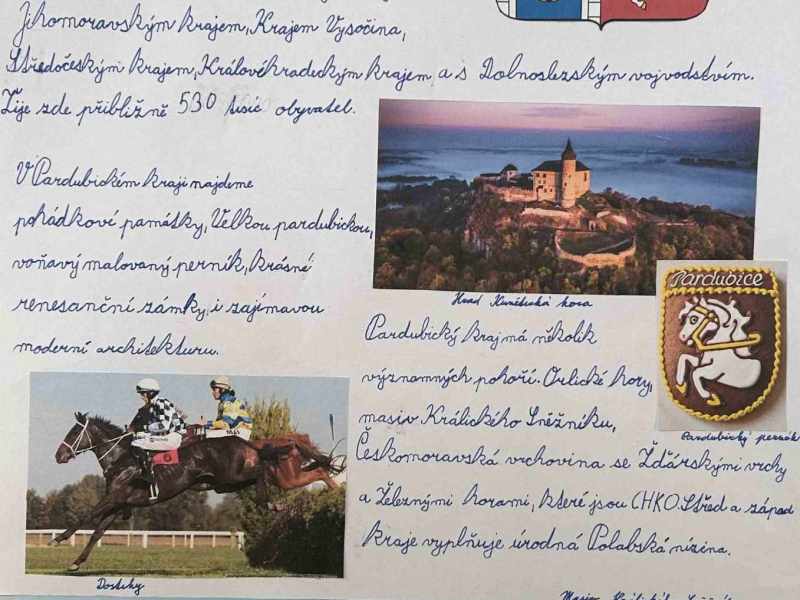 Jihomoravským krajem, Krajem Vysočina,
Středočeským krajem, Královéhradeckým krajem a s Dolnoslezským vojvodstvím.
Žije zde přibližně 530 tisíc obyvatel.
V Pardubickém kraji najdeme
pohádkové památky, Velkou pardubickou,
voňavý malovaný perník, krásné
renesanční zámky, i zajímavou
moderní architekturu.
Hrad Kunětická hora
Pardubice
Pardubický perník
Pardubický kraj má několik
významných pohoří. Orlické hory,
masiv Králického Sněžníku,
Českomoravská vrchovina se Žďárskými vrchy
a Železnými horami, které jsou CHKO. Střed a západ
kraje vyplňuje úrodná Polabská nížina.
Dostihy
Masiv Králického